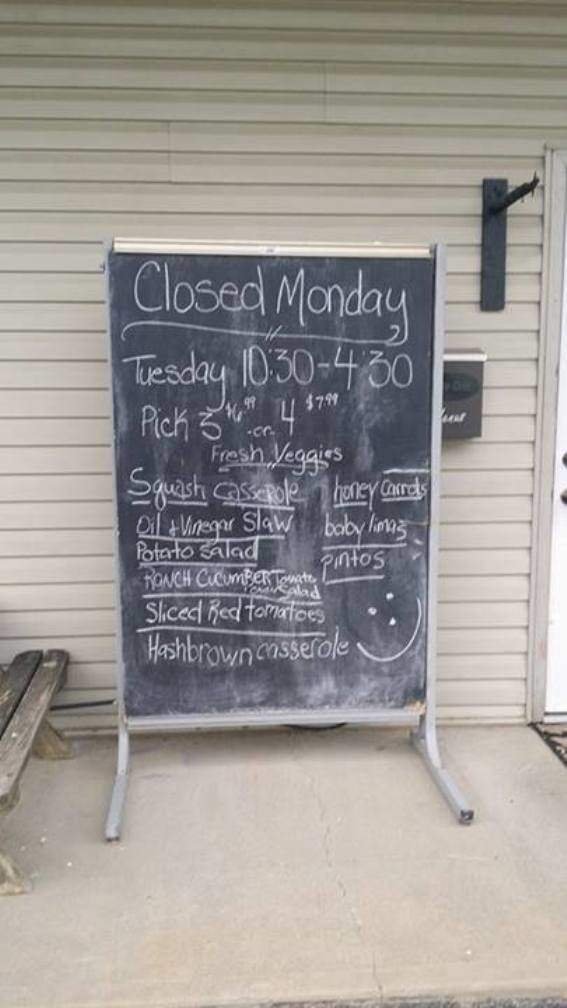 Closed Monday
Tuesday 10:30-4:30
Pick 3 $6.99 -or- 4 $7.99
Fresh Veggies
Squash Casserole honey Carrots
Oil + Vinegar Slaw baby limas
Potato Salad pintos
RANCH CUCUMBER Tomato
onion Salad
Sliced Red tomatoes
Hashbrown casserole